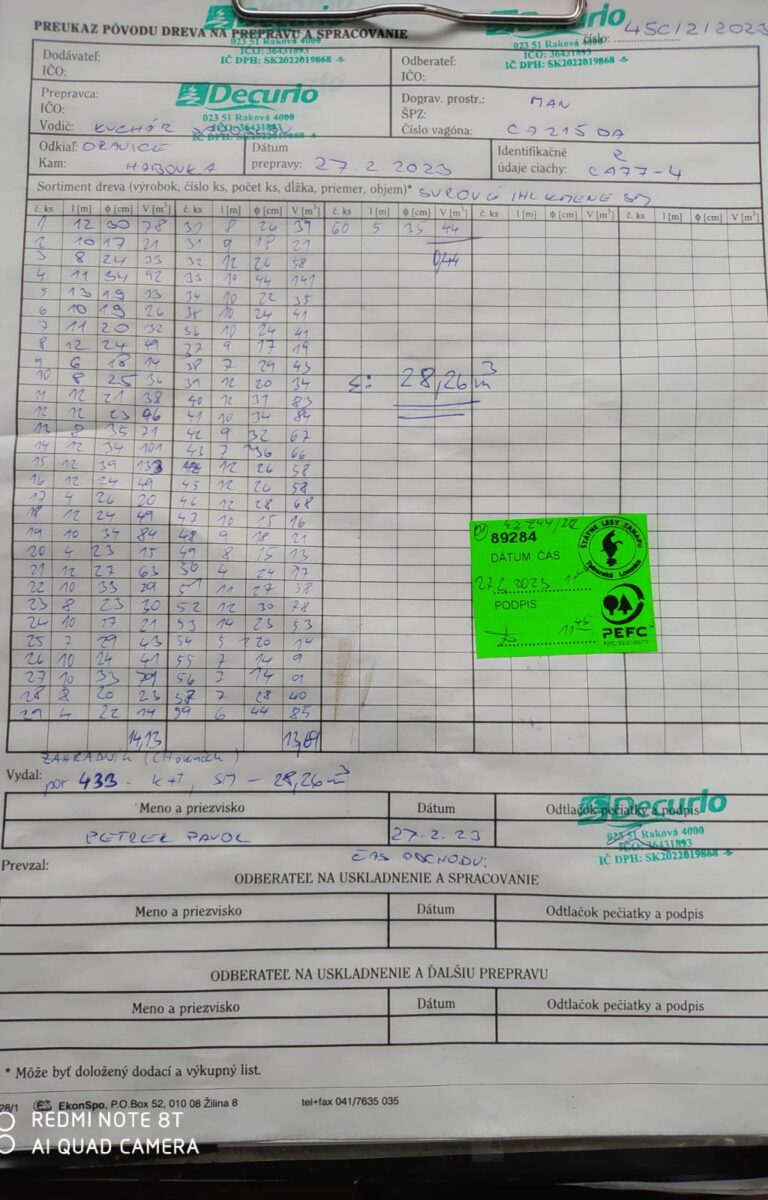 PREUKAZ PÔVODU DREVA NA PREPRAVU A SPRACOVANIE
Decurio
023 51 Raková 4000
IČO: 36431893
IČ DPH: SK2022019868 -5-
číslo: 45C/2/2023
Dodávateľ:
IČO:
Odberateľ:
IČO:
Prepravca:
IČO:
Decurio
023 51 Raková 4000
IČO: 36431893
IČ DPH: SK2022019868 -5-
Vodič: KUCHÁR
Doprav. prostr.: MAN
ŠPZ:
Číslo vagóna: CA215DA
Odkiaľ: ORAVICE
Kam: HABOVKA
Dátum
prepravy: 27.2.2023
Identifikačné
údaje ciachy: CA77-4
Sortiment dreva (výrobok, číslo ks, počet ks, dĺžka, priemer, objem)* SUROVÉ IHL KMENE SM
č. ks l [m] φ [cm] V [m³] č. ks l [m] φ [cm] V [m³] č. ks l [m] φ [cm] V [m³] č. ks l [m] φ [cm] V [m³] č. ks l [m] φ [cm] V [m³]
1 12 30 78 8 26 39 60 5 35 44
2 10 17 21 31 9 18 21
3 8 24 33 32 12 26 58 0,44
4 11 34 92 33 10 44 141
5 13 19 33 34 10 22 35
6 10 19 26 35 10 24 41
7 11 20 32 36 10 24 41
8 12 24 49 37 9 17 19
9 6 18 14 38 7 29 43
10 8 25 36 12 20 34 Σ: 28,26 m³
11 12 21 38 40 12 31 83
12 12 23 46 41 10 34 84
13 8 35 71 42 9 32 67
14 12 34 101 43 7 36 66
15 12 39 133 12 26 58
16 12 24 49 45 12 26 58
17 4 26 20 46 12 28 68
18 12 24 49 47 10 15 16
19 10 34 84 48 9 18 21
20 4 23 15 49 8 15 13
21 12 27 63 50 4 24 17
22 10 33 79 51 11 27 58
23 8 23 30 52 12 30 78
24 10 17 21 53 14 23 53
25 7 29 43 54 5 20 14
26 10 24 41 55 7 14 9
27 10 33 79 56 7 14 9
28 8 20 23 7 28 40
29 4 22 14 59 6 44 85
14,13 13,69
89284
DÁTUM: ČAS
27.2.2023
PODPIS
11 45
ŠTÁTNE LESY TANAPU
Tatranská Lomnica
PEFC
Vydal:
por 433 - K+T, SM - 28,26 m³
Meno a priezvisko Dátum Odtlačok pečiatky a podpis
PETREK PAVOL 27.2.23
Decurio
023 51 Raková 4000
IČO: 36431893
IČ DPH: SK2022019868 -5-
Prevzal:
ČAS ODCHODU:
ODBERATEĽ NA USKLADNENIE A SPRACOVANIE
Meno a priezvisko Dátum Odtlačok pečiatky a podpis
ODBERATEĽ NA USKLADNENIE A ĎALŠIU PREPRAVU
Meno a priezvisko Dátum Odtlačok pečiatky a podpis
* Môže byť doložený dodací a výkupný list.
28/1 EkonSpo, P.O.Box 52, 010 08 Žilina 8 tel+fax 041/7635 035
REDMI NOTE 8T
AI QUAD CAMERA